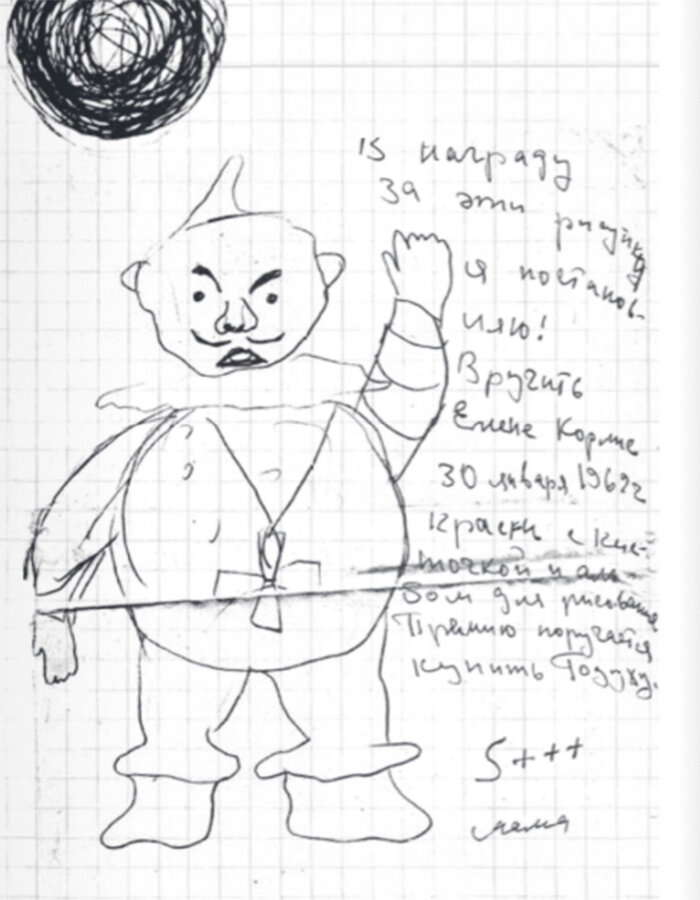 В награду
за эти рисунки
я постанов-
ляю!
Вручить
Елене Корме
30 января 1962 г
краски с кис-
точкой и аль-
бом для рисования.
Премию поручается
купить
5+++
мама